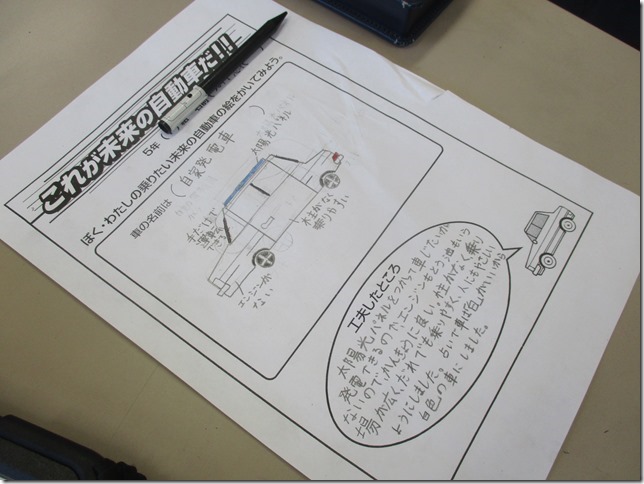 これが未来の自動車だ!!
5年
ぼく・わたしの乗りたい未来の自動車の絵をかいてみよう。
車の名前は(自家発電車)
太陽光パネル
手だけで
運転
できる
柱がなく
乗りやすい
エンジンが
ない
工夫したところ
太陽光パネルをつかって車じたいが
発電できるので、エンジンもとう油もいら
ないので、かんきょうに良い。柱がなく乗り
場が広く、だれでも乗りやすく、人にもやさしい
ようにしました。占いで車は「白」がいいから
白色の車にしました。